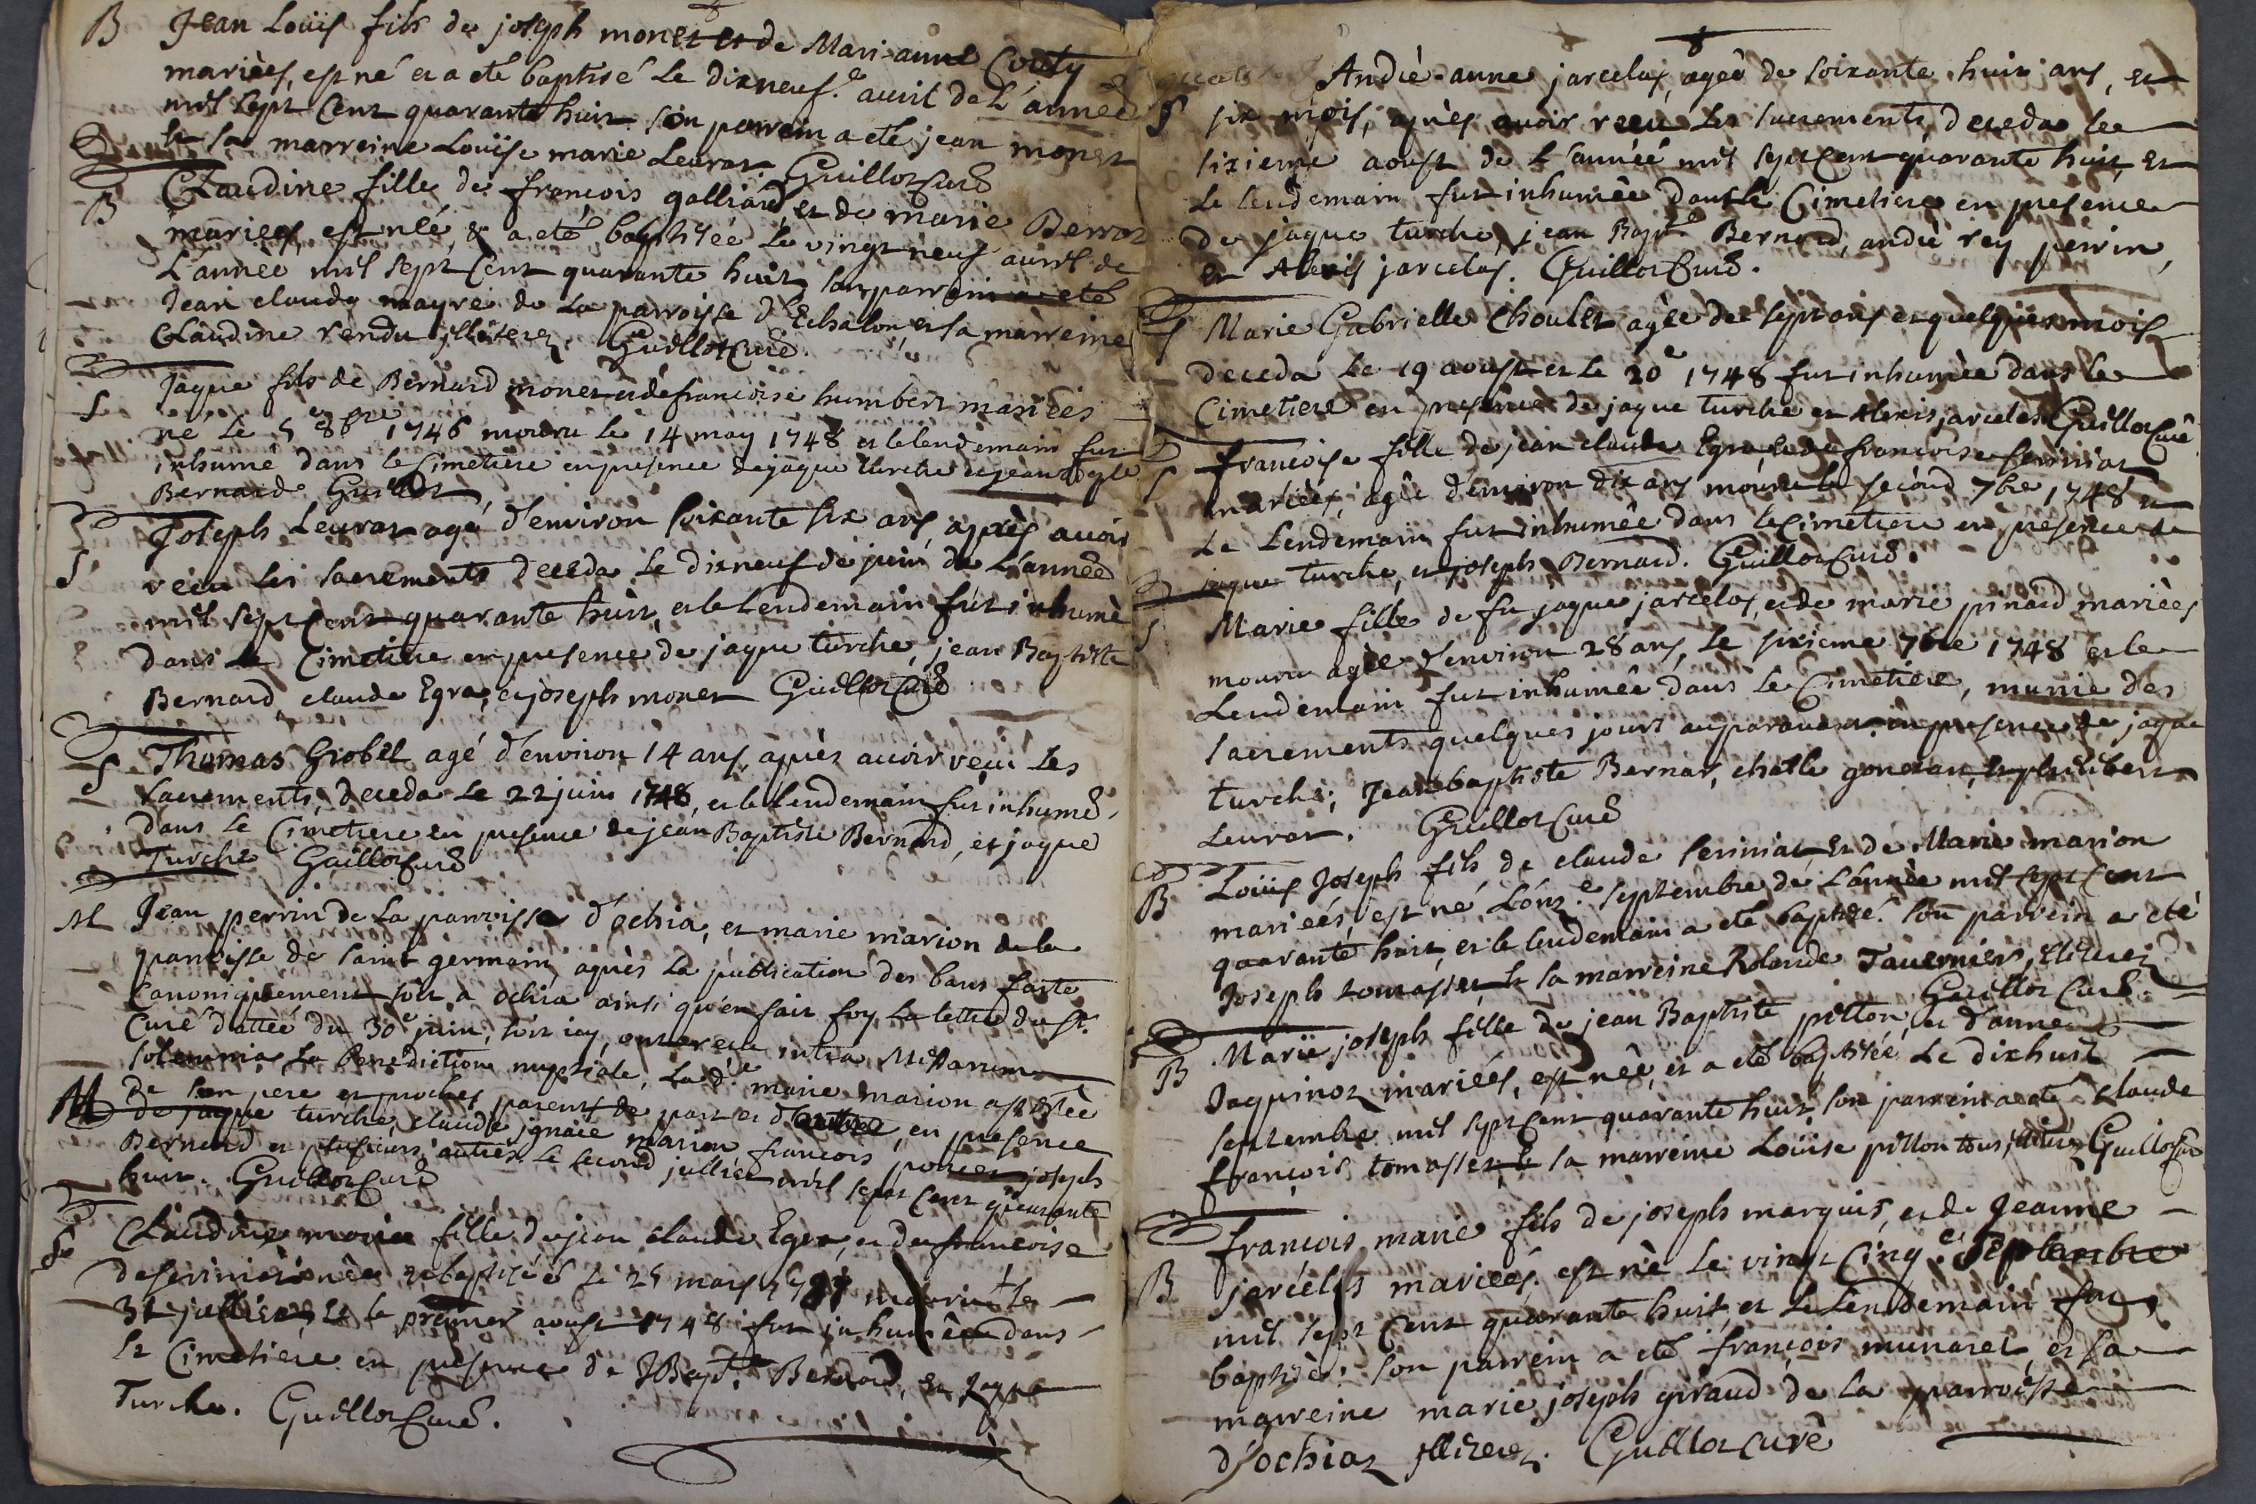 B Jean Louïs fils de joseph monet et de Mari-anne Couty
mariéés, est né et a eté baptisé Le dixneuf.e auril de L'année
mil sept Cent quarante huit son parrein a eté jean monet
Et sa marreine Louïse marie Leurat. Guillot Curé
B Claudine fille de francois galliard, et de marie Berrot
mariéés, est néé, & a eté baptiséé Le vingt neuf auril de
L'année mil sept Cent quarante huit, son parrein a eté
Jean claude mayre de La parroisse d'Echalon, et sa marreine
Claudine rendu illiterez. Guillot Curé.
S Jaque fils de Bernard monet et de francoise humbert mariéés
né Le 5e 8bre 1746 mouru Le 14 may 1748 et le lendemain fut
inhumé dans le Cimetiere en presence de jaque turche et jean Bapte
Bernard Guillot
S Joseph Leurat agé d'environ soixante six ans, aprés auoir
reçu les sacrements deceda Le dixneuf de juin de L'année
mil sept Cent quarante huit, et le Lendemain fut inhumé
dans Le Cimetiere en presence de jaque turche, jean Baptiste
Bernard, claude Egra, et joseph monet Guillot Curé
S Thomas Grobet agé d'environ 14 ans, aprés auoir reçu Les
sacrements, deceda Le 22 juin 1748, et le lendemain fut inhumé
dans Le Cimetiere en presence de jean Baptiste Bernard, et jaque
Turche Guillot Curé
M Jean perrin de La parroisse d'ochia, et marie marion de la
parroisse de saint germain, aprés La publication des bans faite
Canoniquement soit a ochia ainsi qu'en fait foy La lettre du Sr.
Curé dattéé du 30e juin, soit icy, ont receu intra Missarum
solemnia La benediction nuptiale, La d.e marie marion assistéé
de son pere et proches parents de part et d'autre, en presence
M de jaque turche, claude ignace marion francois poncet joseph
Bernard et plusieurs autres Le second julliet mil sept Cent quarante
huit. Guillot Curé
S Claudine marie fille de jean claude Egra, et de francoise
de sermie née & baptiséé le 25 mars mourut le
31 julliet, et le premier aoust 1748 fut inhuméé dans
le Cimetiere en presence de JBapt.e Bernard, et Jaque
Turche. Guillot Curé.
André-anne jarcelas, agéé de soixante huit ans, et
S six mois, aprés auoir reçu Les sacrements, deceda le
sixieme aoust de L'année mil sept Cent quarante huit, Et
Le lendemain fut inhuméé dans le Cimetiere en presence
de jaque turche, jean Bapt.e Bernard, andré rey perrin,
et Alexis jarcelas. Guillot Curé.
S Marie Gabrielle Choulet agéé de sept ans et quelques mois
deceda Le 19 aoust et Le 20e 1748 fut inhuméé dans le
Cimetiere en presence de jaque turche et Alexis jarcelas Guillot Curé
S francoise fille de jean claude Egra et de francoise serminat
mariéés, agéé d'environ dix ans mourut le second 7bre 1748 et
Le Lendemain fut inhuméé dans le Cimetiere en presence de
jaque turche, et joseph Bernard. Guillot Curé.
S Marie fille de fu jaque jarcelas, et de marie pinard mariéés
mouru agéé d'environ 28 ans, Le sixieme 7bre 1748 et le
Lendemain fut inhuméé dans Le Cimetiere, munie des
sacrements quelques jours auparauant en presence de jaque
turche, Jean baptiste Bernard, charle goncian, et philibert
Leurat. Guillot Curé
B Louïs Joseph fils de claude serminat, Et de Marie marion
mariéés, est né L'onz.e septembre de L'année mil sept Cent
quarante huit, et le lendemain a eté baptisé. son parrein a eté
Joseph tomasset, et sa marreine Rolande Tauernier, illiterez
Guillot Curé.
B Marie joseph fille de jean Baptiste pitton, et d'anne
Jaquinot mariéés, est néé, et a eté baptiséé Le dixhuit
septembre mil sept Cent quarante huit, son parrein a eté claude
françois tomasset, et sa marreine Louïse pitton tous illiterez Guillot Curé
B francois marie fils de joseph marquis, et de Jeanne
jarcelas mariéés, est né Le vingt Cinq.e septembre
mil sept Cent quarante huit, et Le Lendemain fut
baptisé: son parrein a eté francois munaret, et sa
marreine marie joseph giraud de La parroisse
d'ochiaz illiterez. Guillot Curé